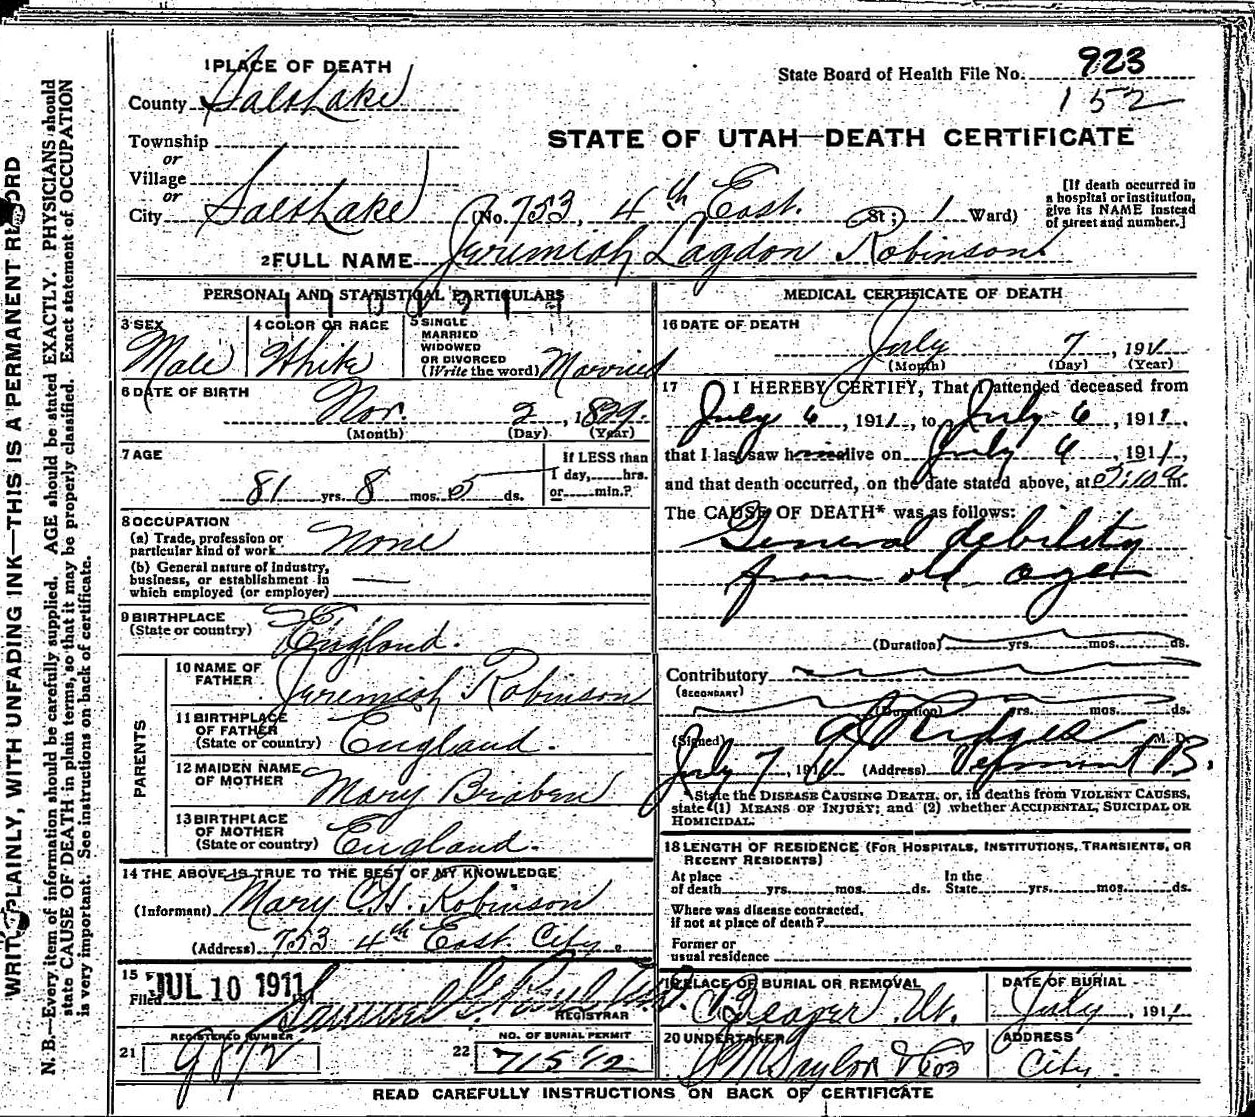 WRITE PLAINLY, WITH UNFADING INK—THIS IS A PERMANENT RECORD
N. B.—Every item of information should be carefully supplied. AGE should be stated EXACTLY. PHYSICIANS should
state CAUSE OF DEATH in plain terms, so that it may be properly classified. Exact statement of OCCUPATION
is very important. See instructions on back of certificate.
1 PLACE OF DEATH
County Salt Lake
Township
or
Village
or
City Salt Lake (No. 753, 4th East St; 1 Ward)
State Board of Health File No. 923
152
STATE OF UTAH—DEATH CERTIFICATE
[If death occurred in
a hospital or institution,
give its NAME instead
of street and number.]
2 FULL NAME Jeremiah Lagdon Robinson
PERSONAL AND STATISTICAL PARTICULARS
3 SEX Male
4 COLOR OR RACE White
5 SINGLE
MARRIED
WIDOWED
OR DIVORCED
(Write the word) Married
6 DATE OF BIRTH
Nov. 2, 1829.
(Month) (Day) (Year)
7 AGE
81 yrs. 8 mos. 5 ds.
If LESS than
1 day, hrs.
or min.?
8 OCCUPATION
(a) Trade, profession or
particular kind of work None
(b) General nature of industry,
business, or establishment in
which employed (or employer)
9 BIRTHPLACE
(State or country) England.
PARENTS
10 NAME OF
FATHER Jeremiah Robinson
11 BIRTHPLACE
OF FATHER
(State or country) England.
12 MAIDEN NAME
OF MOTHER Mary Braben
13 BIRTHPLACE
OF MOTHER
(State or country) England.
14 THE ABOVE IS TRUE TO THE BEST OF MY KNOWLEDGE
(Informant) Mary C.H. Robinson
(Address) 753 4th East City.
15
Filed JUL 10 1911 Samuel G. Paul
REGISTRAR
REGISTERED NUMBER
21 9872
NO. OF BURIAL PERMIT
22 71592
MEDICAL CERTIFICATE OF DEATH
16 DATE OF DEATH
July 7, 1911
(Month) (Day) (Year)
17 I HEREBY CERTIFY, That I attended deceased from
July 6, 1911, to July 6, 1911,
that I last saw him alive on July 6, 1911,
and that death occurred, on the date stated above, at m.
The CAUSE OF DEATH* was as follows:
General debility
from old age
(Duration) yrs. mos. ds.
Contributory
(SECONDARY)
(Duration) yrs. mos. ds.
(Signed) A Ridges M. D.
July 7, 1911 (Address) Vermont B.
State the DISEASE CAUSING DEATH, or, in deaths from VIOLENT CAUSES,
state (1) MEANS OF INJURY; and (2) whether ACCIDENTAL, SUICIDAL OR
HOMICIDAL.
18 LENGTH OF RESIDENCE (FOR HOSPITALS, INSTITUTIONS, TRANSIENTS, OR
RECENT RESIDENTS)
At place
of death yrs. mos. ds. In the
State yrs. mos. ds.
Where was disease contracted,
if not at place of death?
Former or
usual residence
19 PLACE OF BURIAL OR REMOVAL
Beaver Ut.
DATE OF BURIAL
July, 1911
20 UNDERTAKER
S M Taylor & Co
ADDRESS
City
READ CAREFULLY INSTRUCTIONS ON BACK OF CERTIFICATE